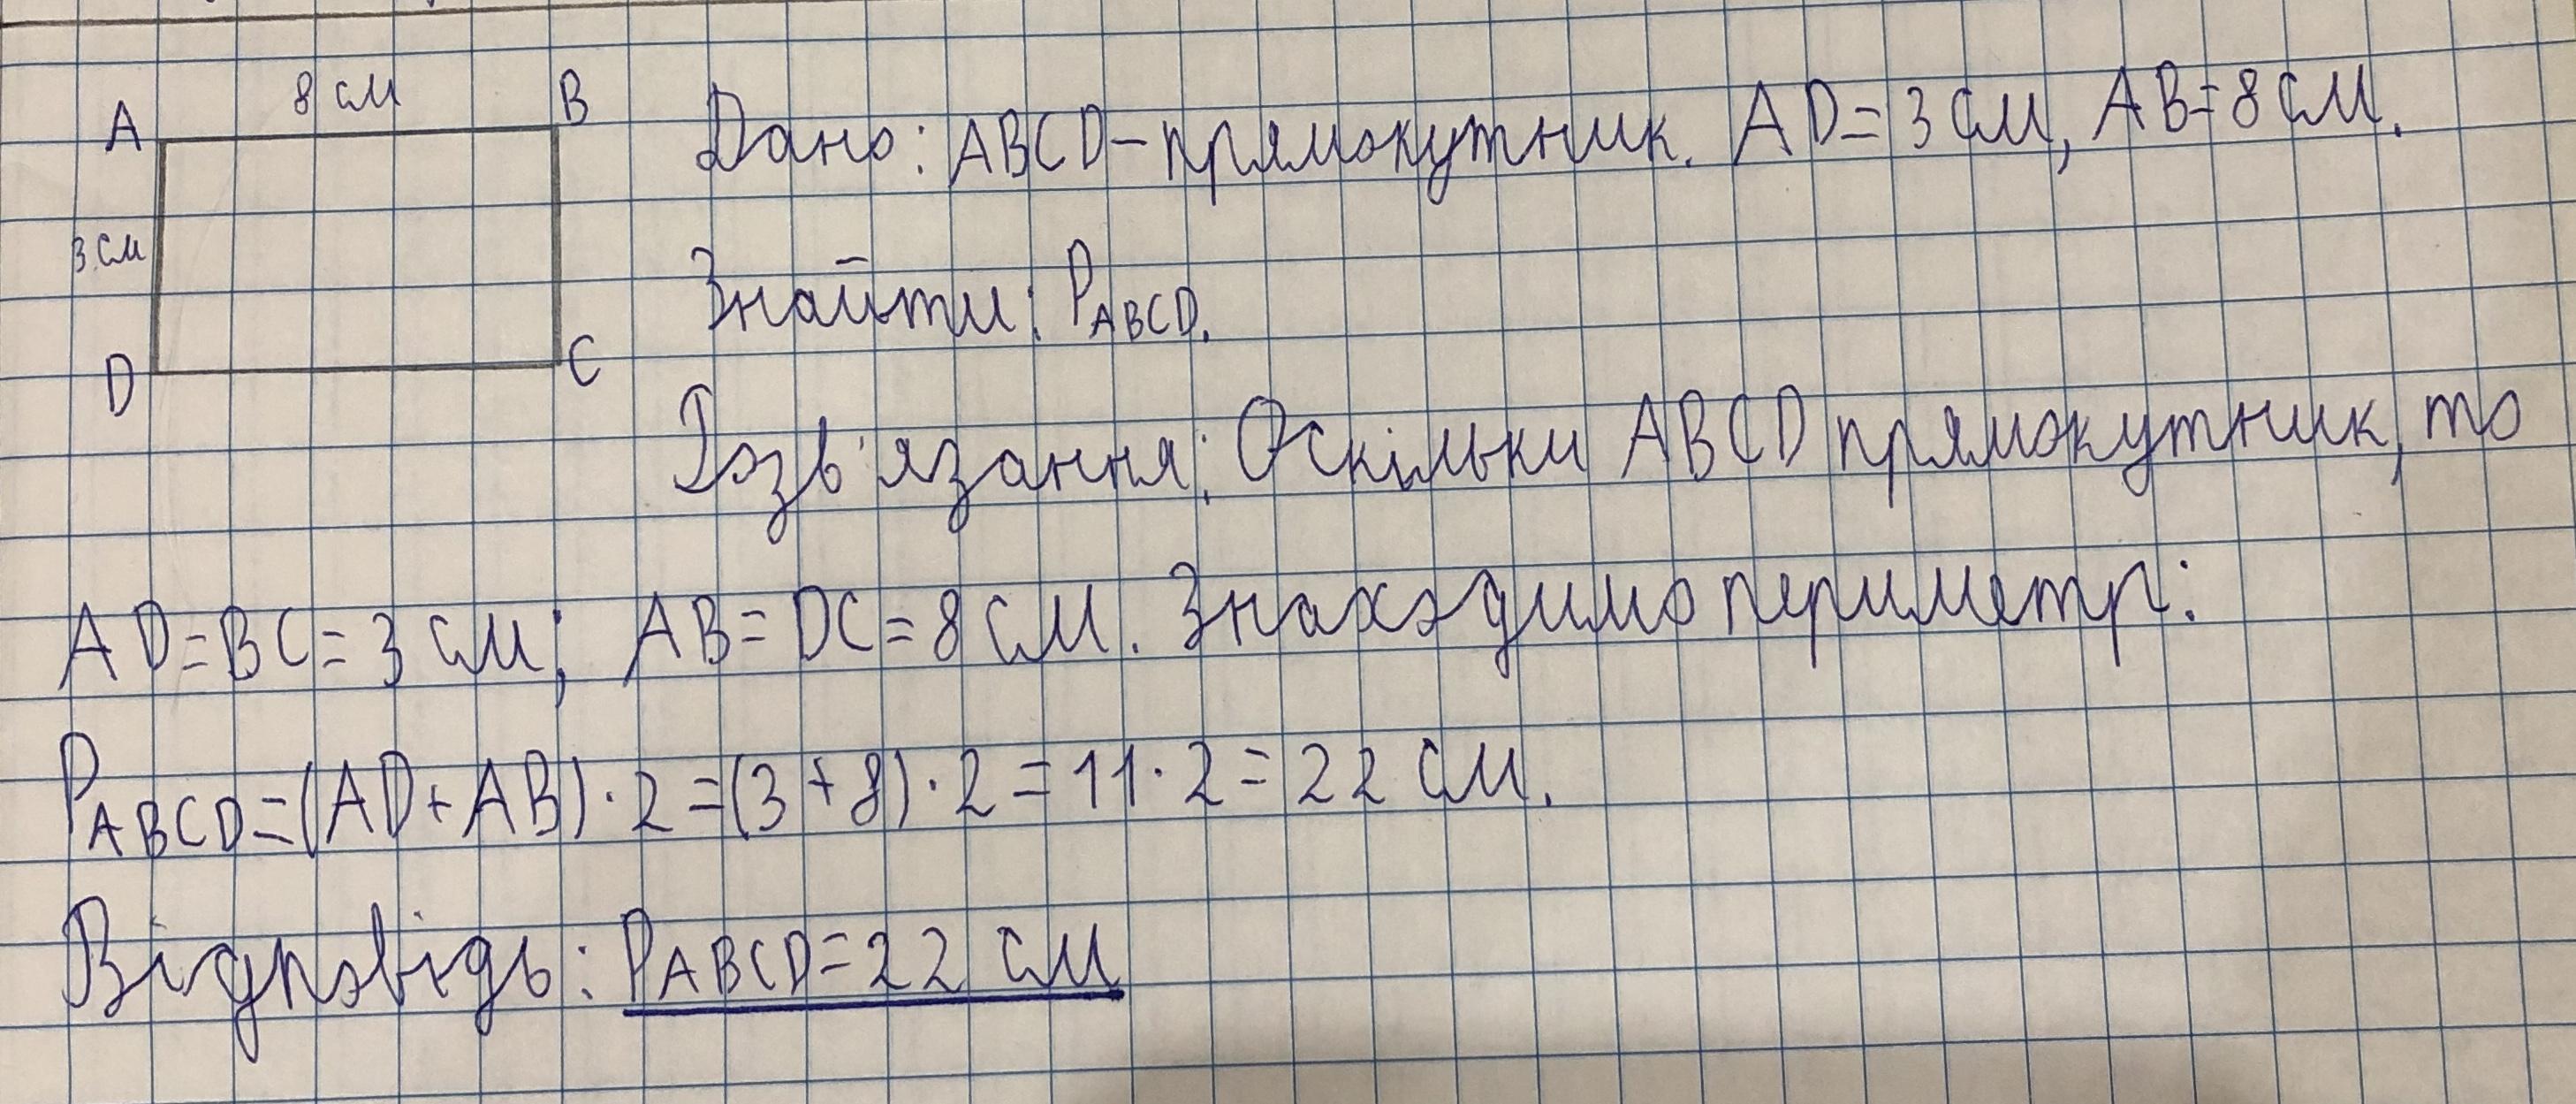 8 см
A B
Дано: ABCD – прямокутник. AD = 3 см, AB = 8 см.
3 см
Знайти: PABCD.
D C
Розв'язання: Оскільки ABCD прямокутник, то
AD = BC = 3 см; AB = DC = 8 см. Знаходимо периметр:
PABCD = (AD + AB) · 2 = (3 + 8) · 2 = 11 · 2 = 22 см.
Відповідь: PABCD = 22 см